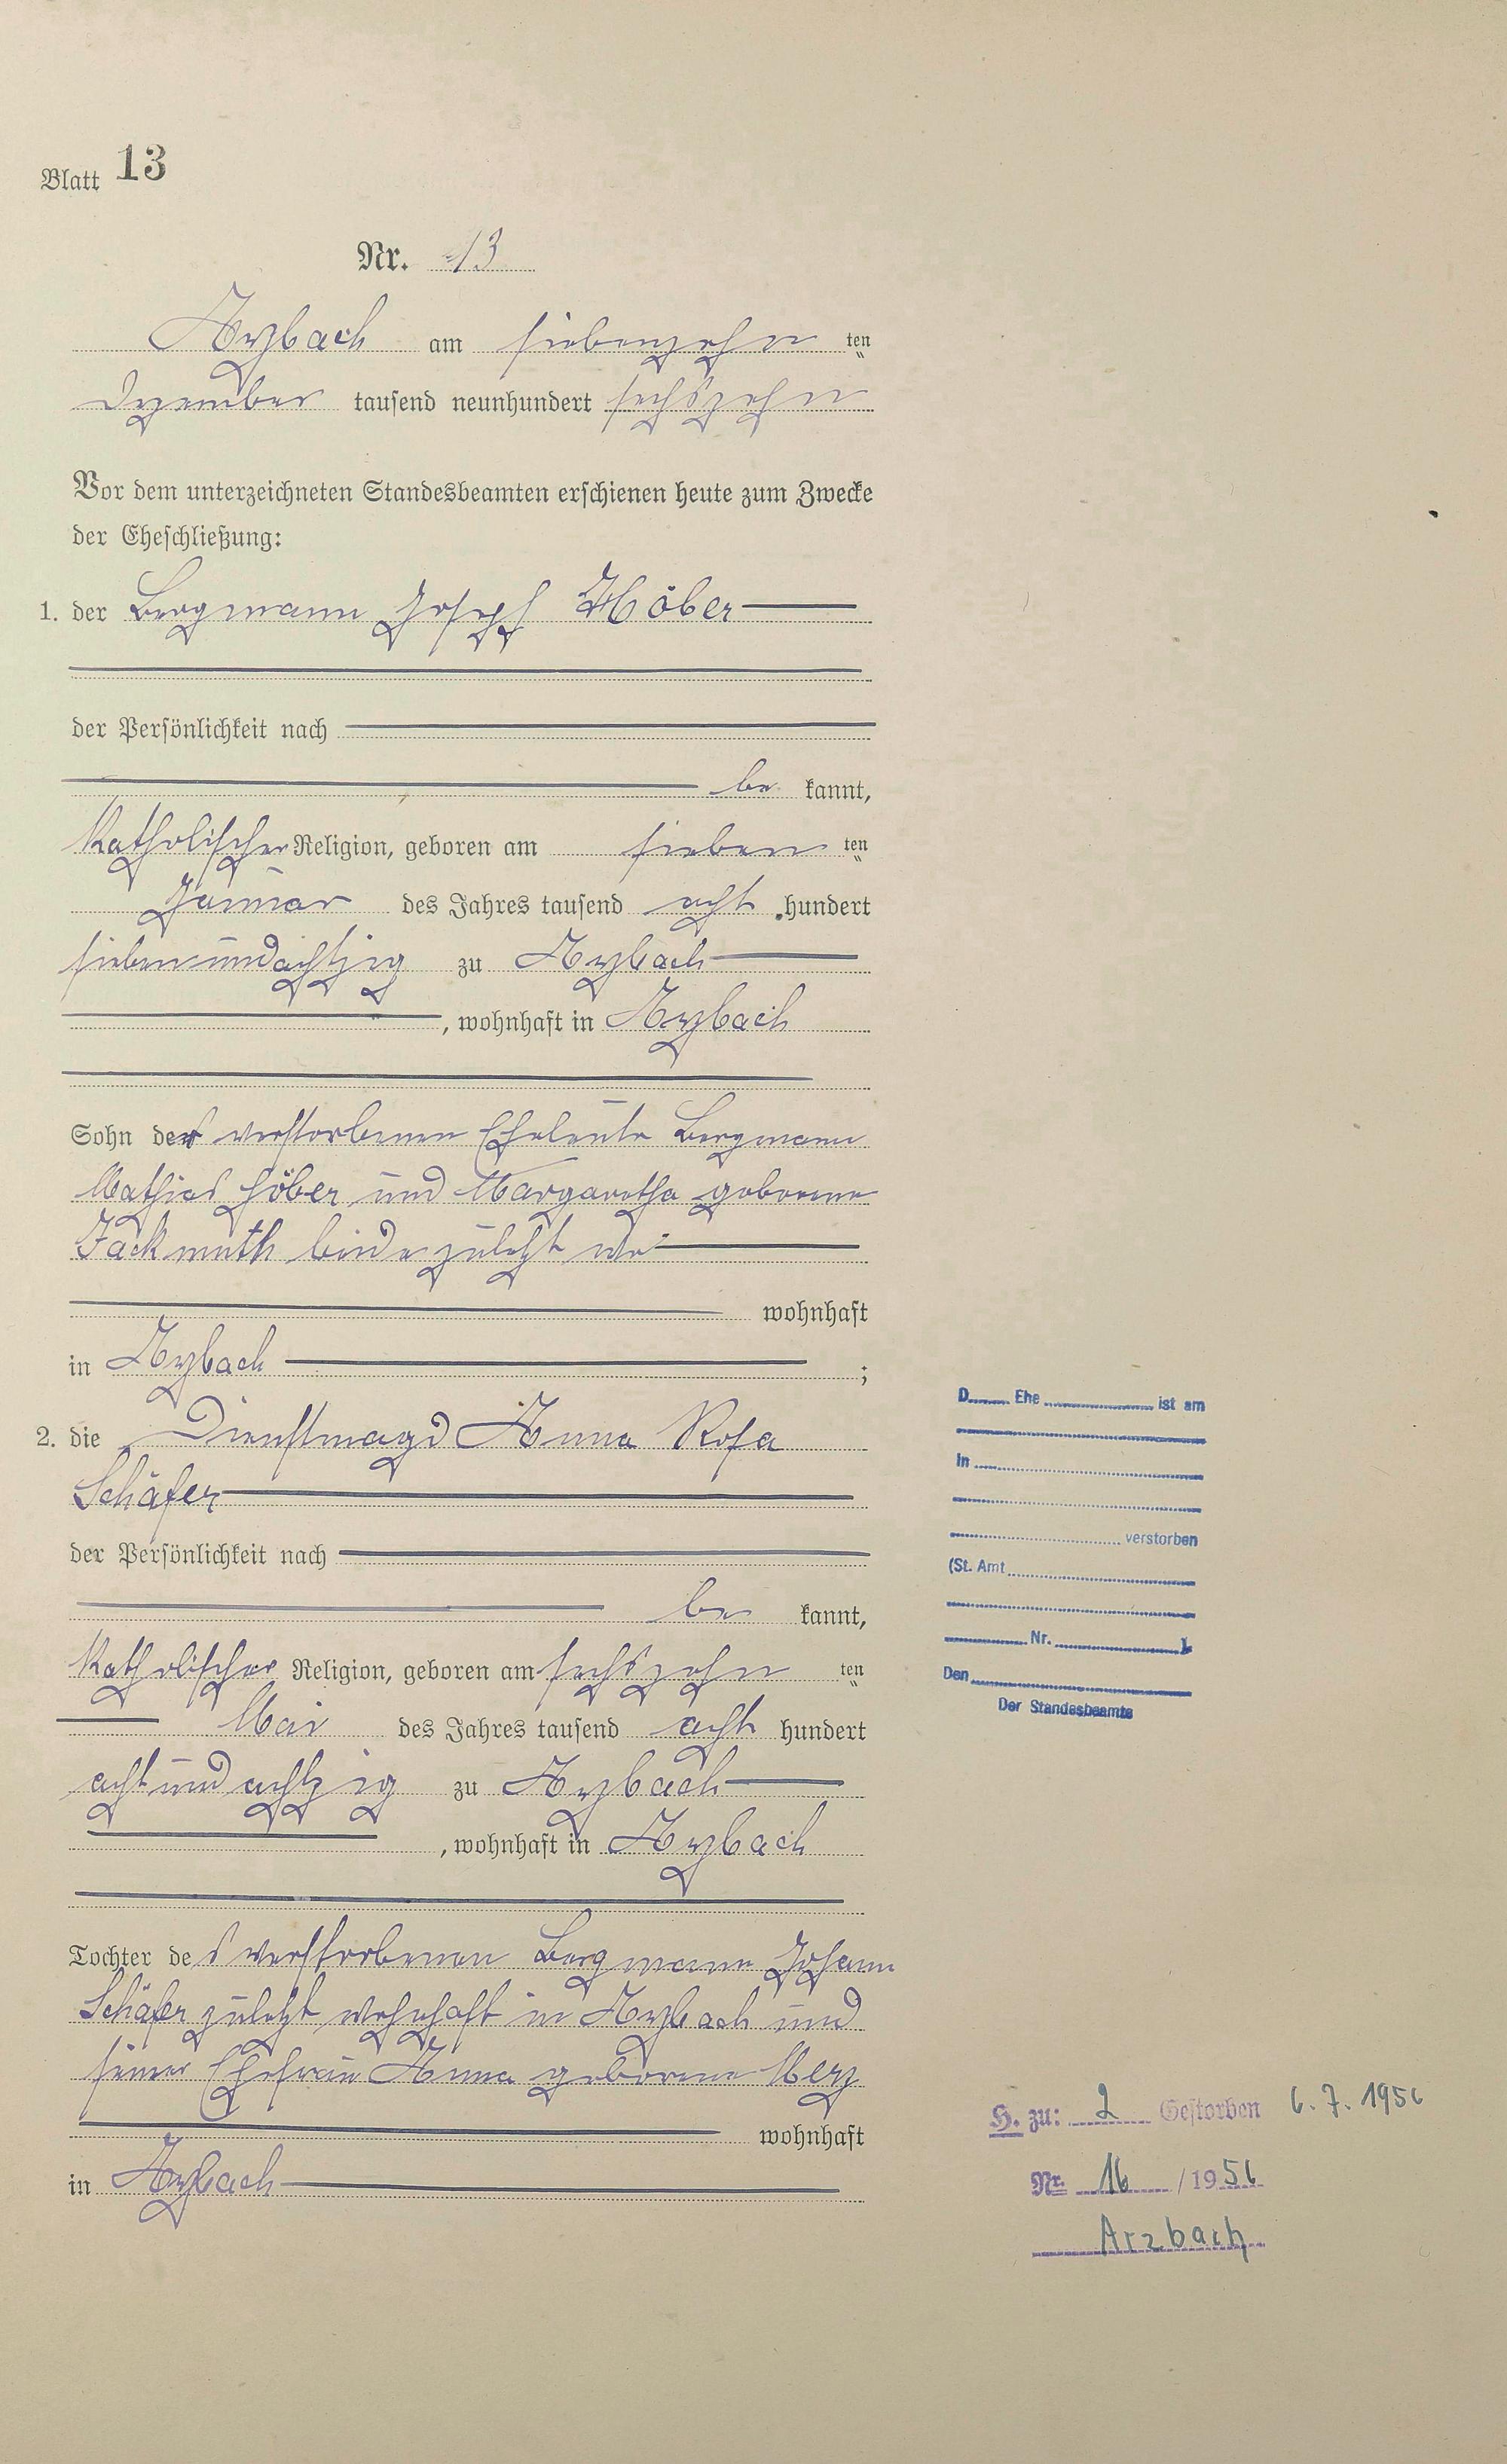 Blatt 13
Nr. 13
Arzbach am siebenzehn ten
Dezember tausend neunhundert sechszehn
Vor dem unterzeichneten Standesbeamten erschienen heute zum Zwecke
der Eheschließung:
1. der Bergmann Joseph Höber
der Persönlichkeit nach
be kannt,
katholischer Religion, geboren am sieben ten
Januar des Jahres tausend acht hundert
siebenundachtzig zu Arzbach
, wohnhaft in Arzbach
Sohn der verstorbenen Eheleute Bergmann
Mathias Höber und Margaretha geborene
Fackmuth beide zuletzt
wohnhaft
in Arzbach ;
2. die Dienstmagd Anna Rosa
Schäfer
der Persönlichkeit nach
be kannt,
katholischer Religion, geboren am sechszehn ten
Mai des Jahres tausend acht hundert
acht und achtzig zu Arzbach
, wohnhaft in Arzbach
Tochter des verstorbenen Bergmann Johann
Schäfer zuletzt wohnhaft in Arzbach und
seiner Ehefrau Anna geborene Merz
wohnhaft
in Arzbach
D Ehe ist am
In
verstorben
(St. Amt
Nr. )
Den
Der Standesbeamte
H. zu: 2 Gestorben 6.7.1956
Nr. 16 / 1956
Arzbach